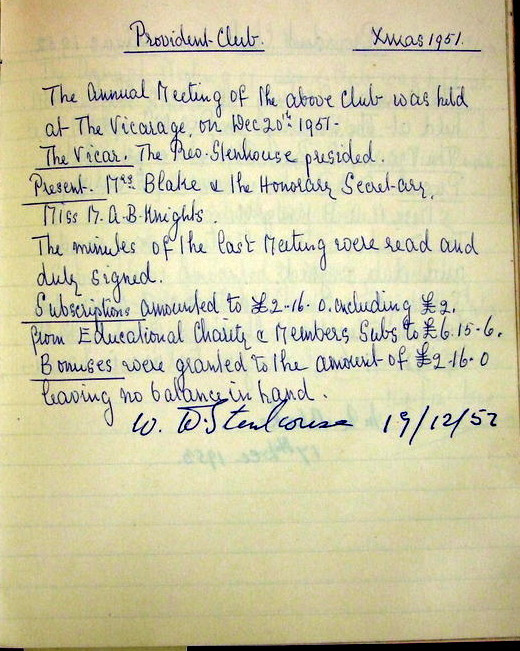 Provident Club. Xmas 1951.
The Annual Meeting of the above Club was held
at The Vicarage, on Dec 20th 1951-
The Vicar. The Rev. Stenhouse presided.
Present. Mrs Blake & the Honorary Secretary,
Miss M. A-B-Knights.
The minutes of the last Meeting were read and
duly signed.
Subscriptions amounted to £2-16-0. including £2.
from Educational Charity & Members Subs to £6.15-6.
Bonuses were granted to the amount of £2-16-0
leaving no balance in hand.
W. W. Stenhouse 19/12/52